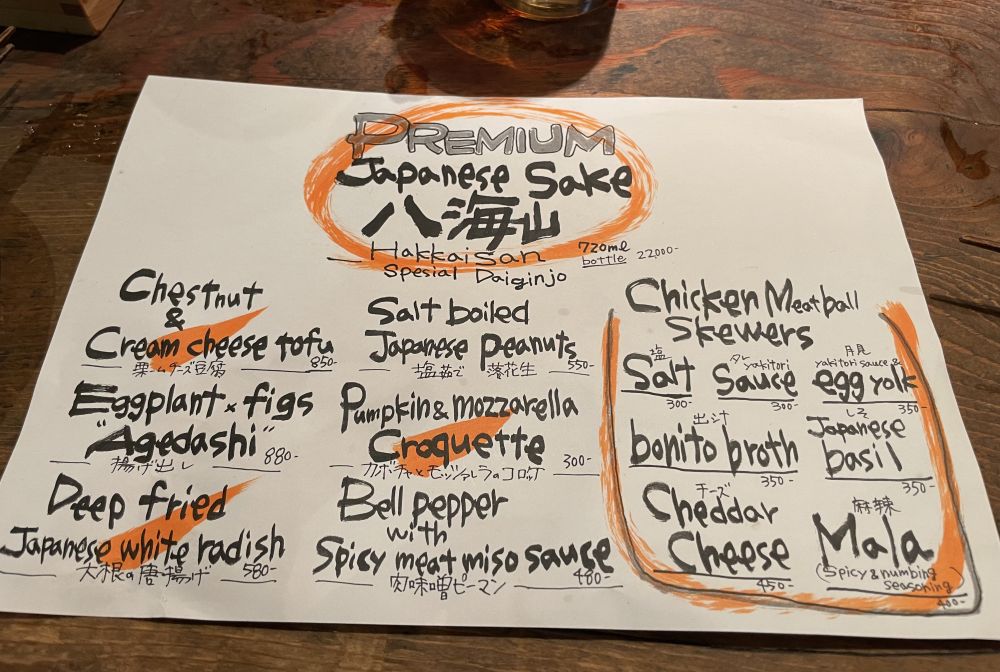 PREMIUM
Japanese Sake
八海山
Hakkaisan
Spesial Daiginjo
720ml
bottle 22000-
Chestnut
&
Cream cheese tofu
栗クリームチーズ豆腐 850-
Eggplant × figs
"Agedashi"
揚げ出し 880-
Deep fried
Japanese white radish
大根の唐揚げ 580-
Salt boiled
Japanese peanuts
塩茹で 落花生 550-
Pumpkin & mozzarella
Croquette
カボチャとモッツァレラのコロッケ 300-
Bell pepper
with
Spicy meat miso sauce
肉味噌ピーマン 480-
Chicken Meatball
Skewers
塩
Salt
300-
タレ yakitori
Sauce
300-
月見
yakitori sauce &
egg yolk
350-
出汁
bonito broth
350-
しそ
Japanese
basil
350-
チーズ
Cheddar
Cheese
450-
麻辣
Mala
(Spicy & numbing
seasoning)
400-